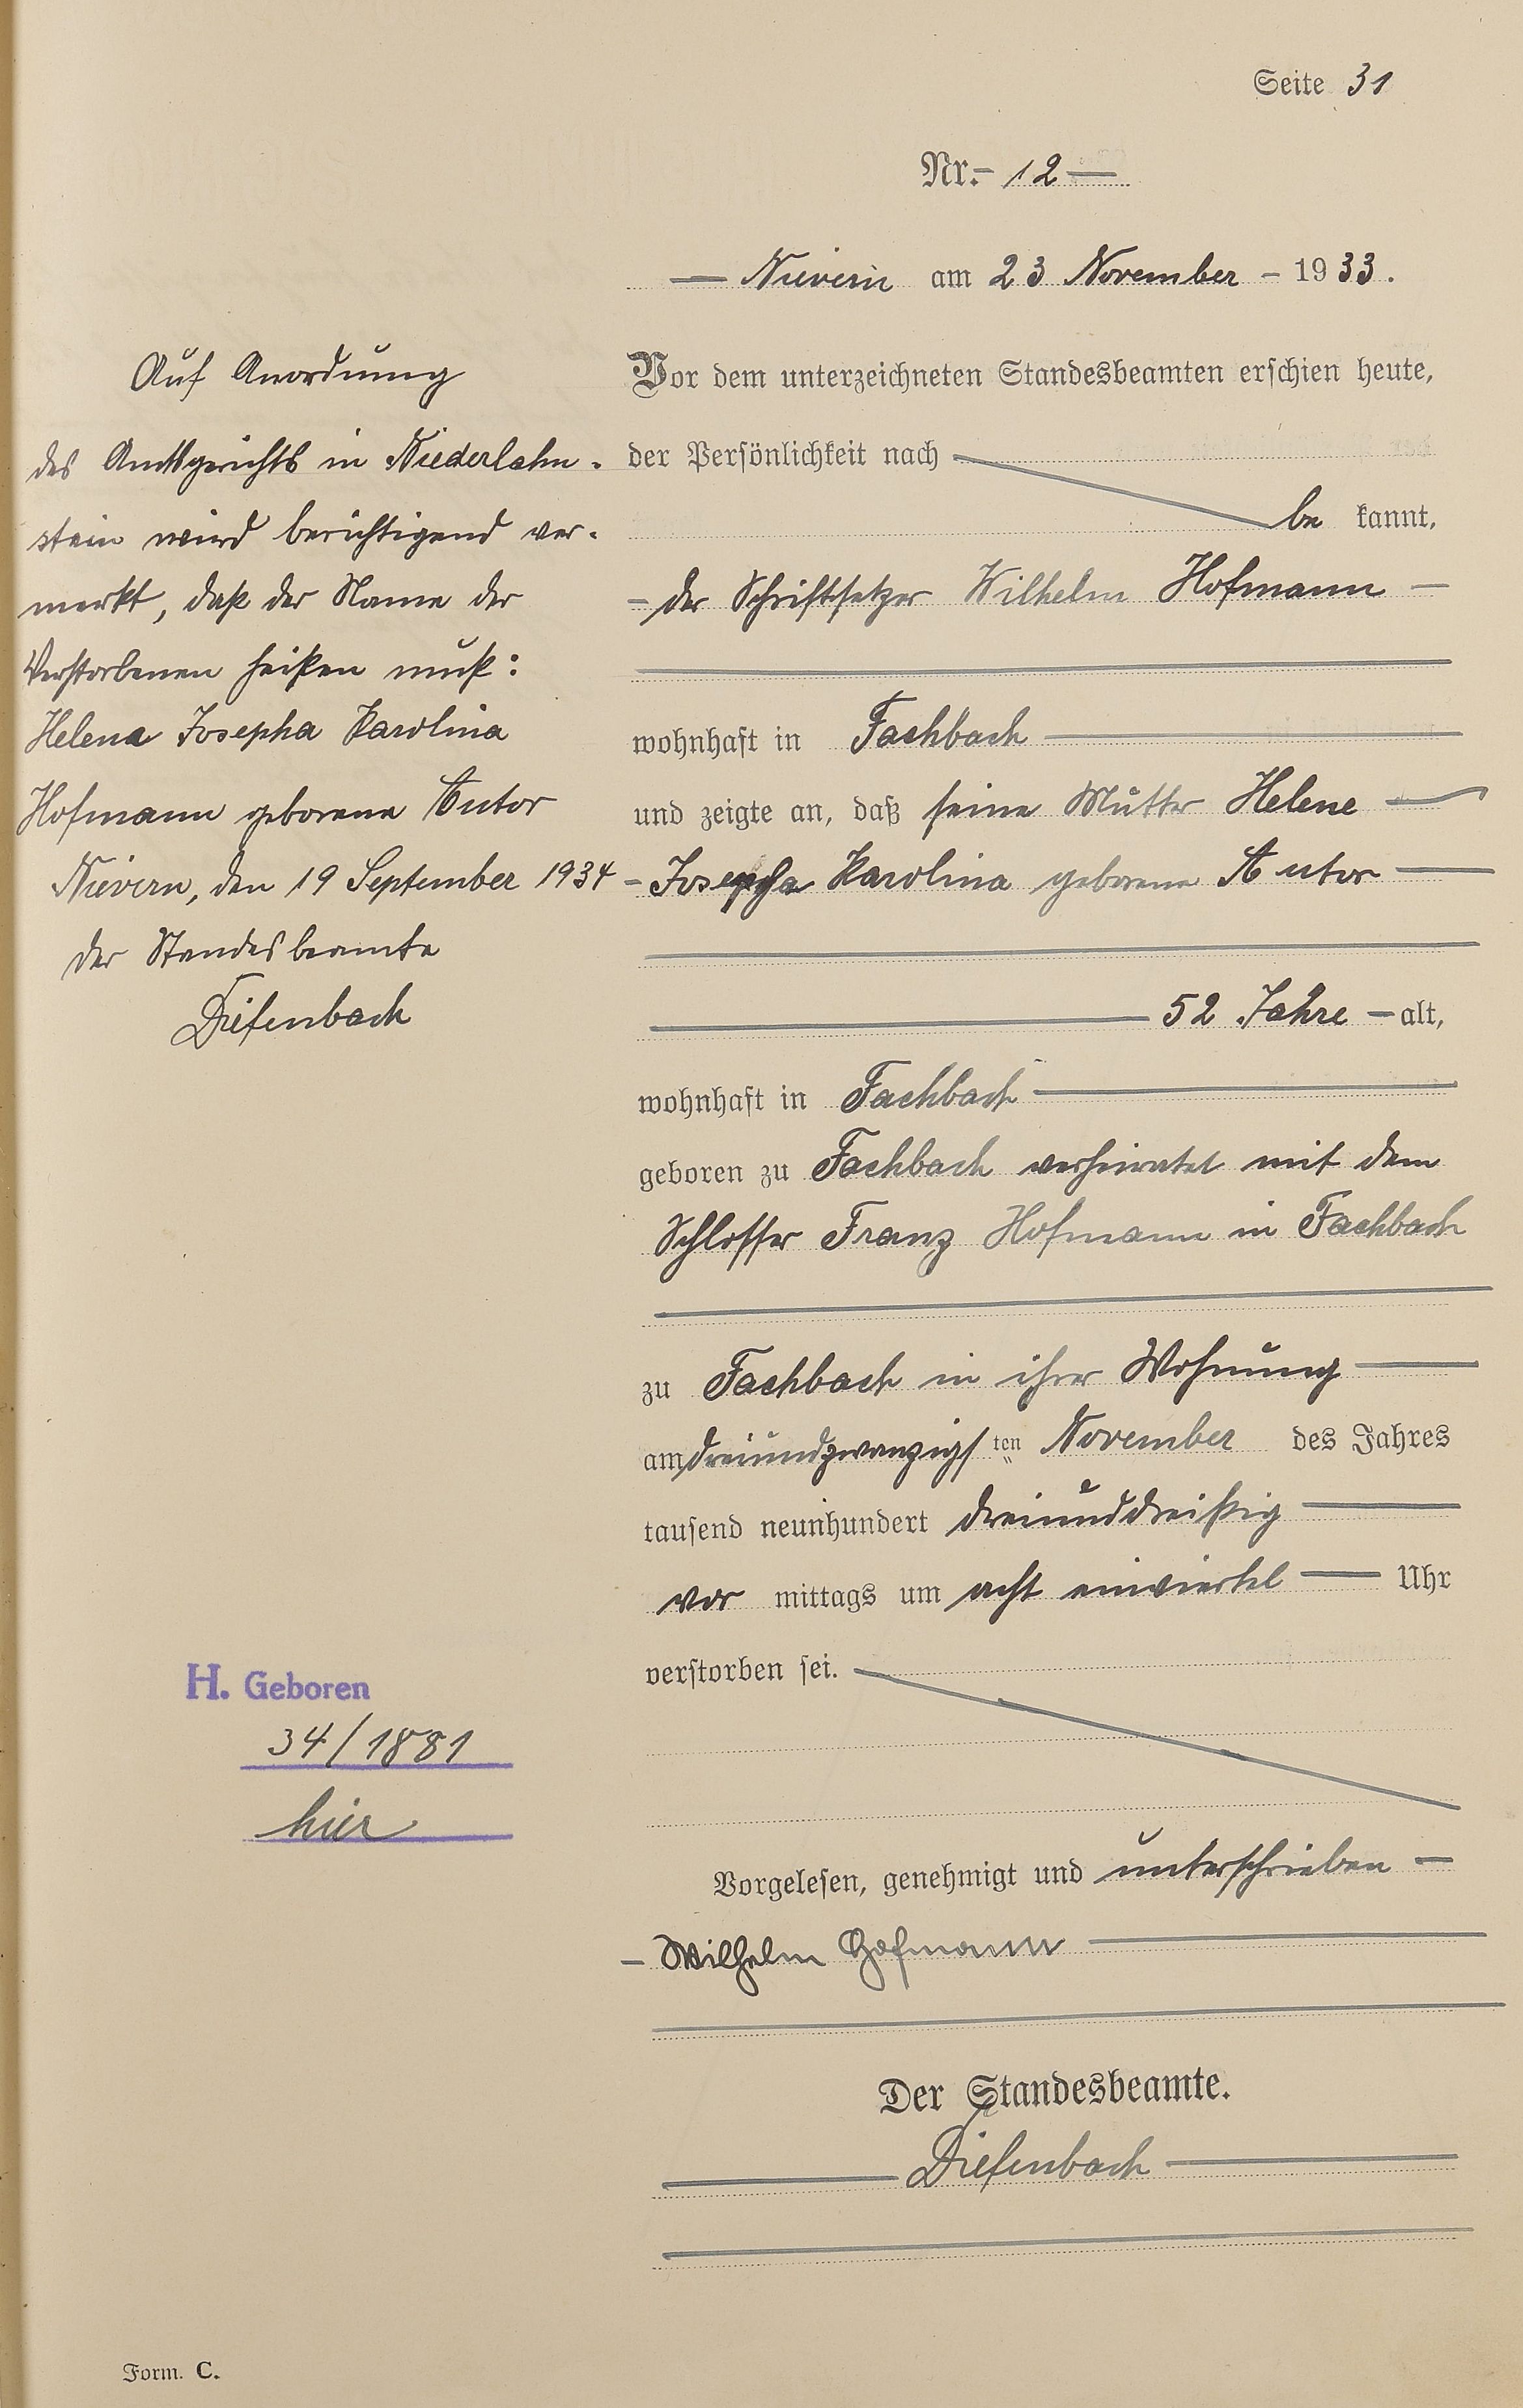 Seite 31
Nr. – 12 —
— Nievern am 23 November – 1933.
Auf Anordnung
des Amtsgerichts in Niederlahn-
stein wird berichtigend ver-
merkt, daß der Name der
Verstorbenen heißen muß:
Helena Josepha Karolina
Hofmann geborene Autor
Nievern, den 19 September 1934
der Standesbeamte
Diefenbach
H. Geboren
34/1881
hier
Vor dem unterzeichneten Standesbeamten erschien heute,
der Persönlichkeit nach
be kannt,
– der Schriftsetzer Wilhelm Hofmann –
wohnhaft in Fachbach —
und zeigte an, daß seine Mutter Helene —
– Josepha Karolina geborene Autor —
— 52 Jahre – alt,
wohnhaft in Fachbach —
geboren zu Fachbach verheiratet mit dem
Schlosser Franz Hofmann in Fachbach
zu Fachbach in ihrer Wohnung —
am dreiundzwanzigsten November des Jahres
tausend neunhundert dreiunddreißig —
vor mittags um acht einviertel — Uhr
verstorben sei.
Vorgelesen, genehmigt und unterschrieben –
– Wilhelm Hofmann —
Der Standesbeamte.
— Diefenbach —
Form. C.